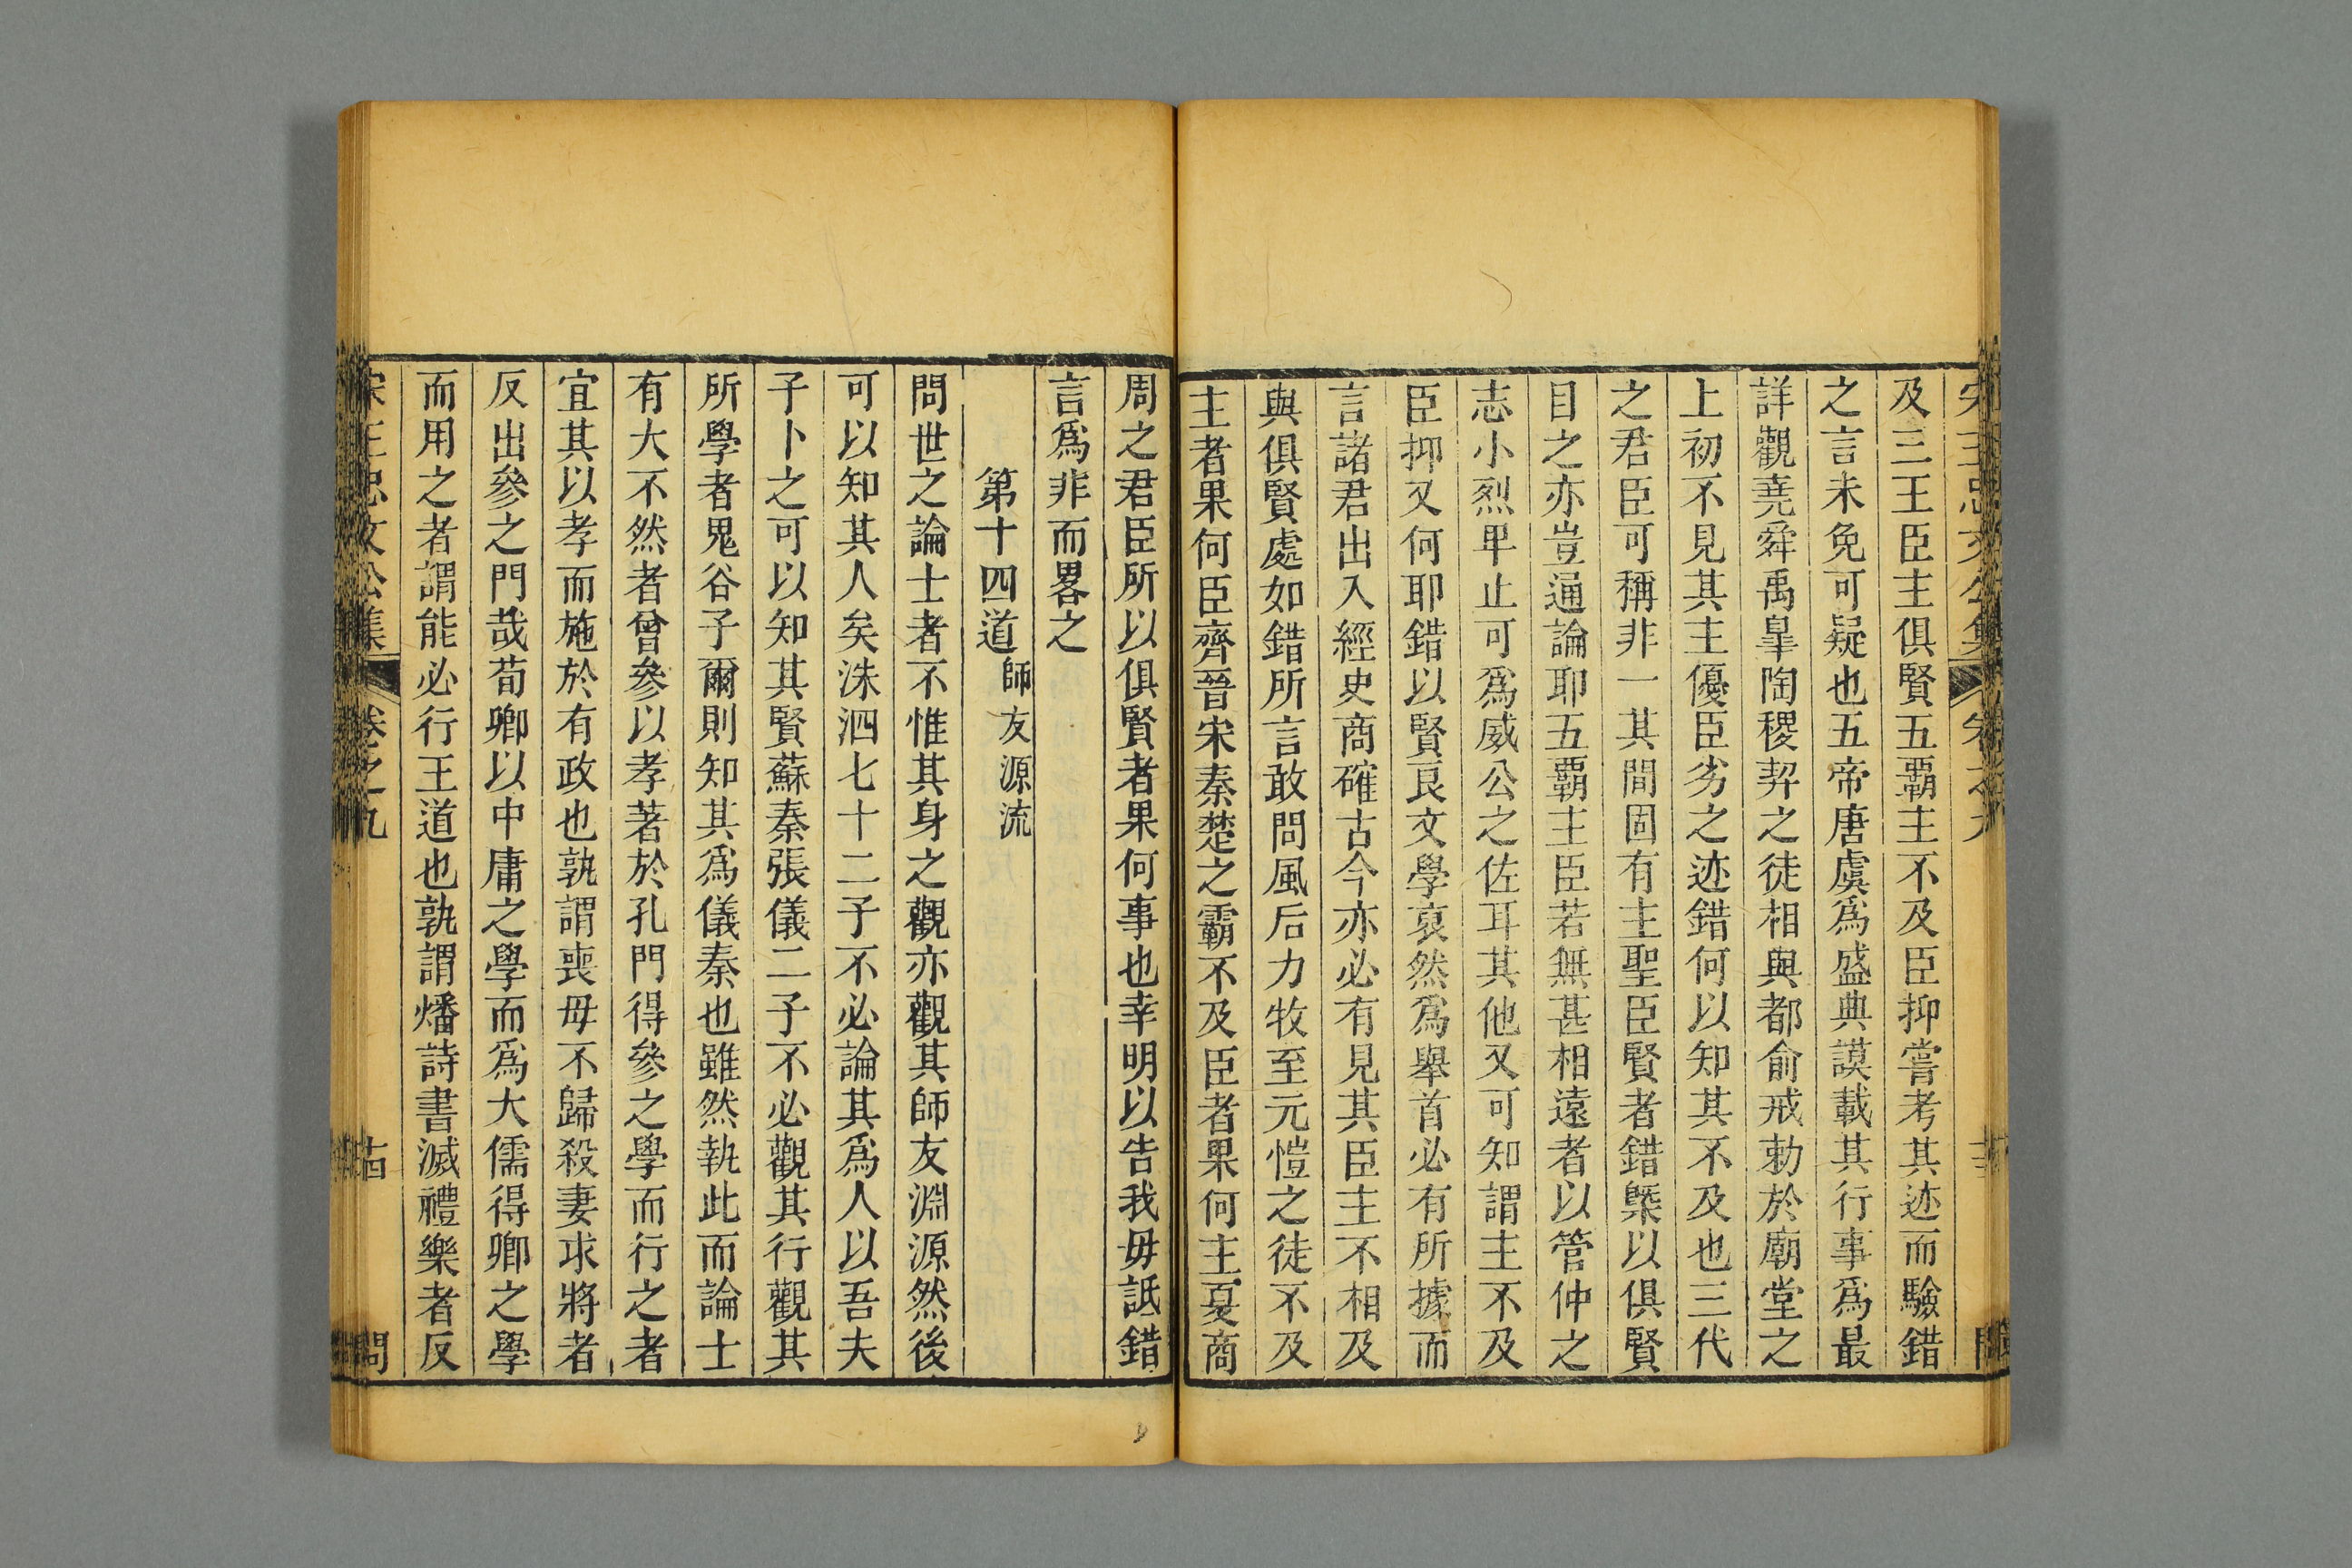 及三王臣主俱賢五霸主不及臣抑嘗考其迹而驗錯
之言未免可疑也五帝唐虞爲盛典謨載其行事爲最
詳觀堯舜禹臯陶稷契之徒相與都俞戒勅於廟堂之
上初不見其主優臣劣之迹錯何以知其不及也三代
之君臣可稱非一其間固有主聖臣賢者錯槩以俱賢
目之亦豈通論耶五霸主臣若無甚相遠者以管仲之
志小烈卑止可爲威公之佐耳其他又可知謂主不及
臣抑又何耶錯以賢良文學裒然爲舉首必有所據而
言諸君出入經史商確古今亦必有見其臣主不相及
與俱賢處如錯所言敢問風后力牧至元愷之徒不及
主者果何臣齊晉宋秦楚之霸不及臣者果何主夏商
周之君臣所以俱賢者果何事也幸明以告我毋詆錯
言爲非而畧之
第十四道師友源流
問世之論士者不惟其身之觀亦觀其師友淵源然後
可以知其人矣洙泗七十二子不必論其爲人以吾夫
子卜之可以知其賢蘇秦張儀二子不必觀其行觀其
所學者鬼谷子爾則知其爲儀秦也雖然執此而論士
有大不然者曾參以孝著於孔門得參之學而行之者
宜其以孝而施於有政也孰謂喪母不歸殺妻求將者
反出參之門哉荀卿以中庸之學而爲大儒得卿之學
而用之者謂能必行王道也孰謂燔詩書滅禮樂者反
宋王忠文公集 卷之九 十四